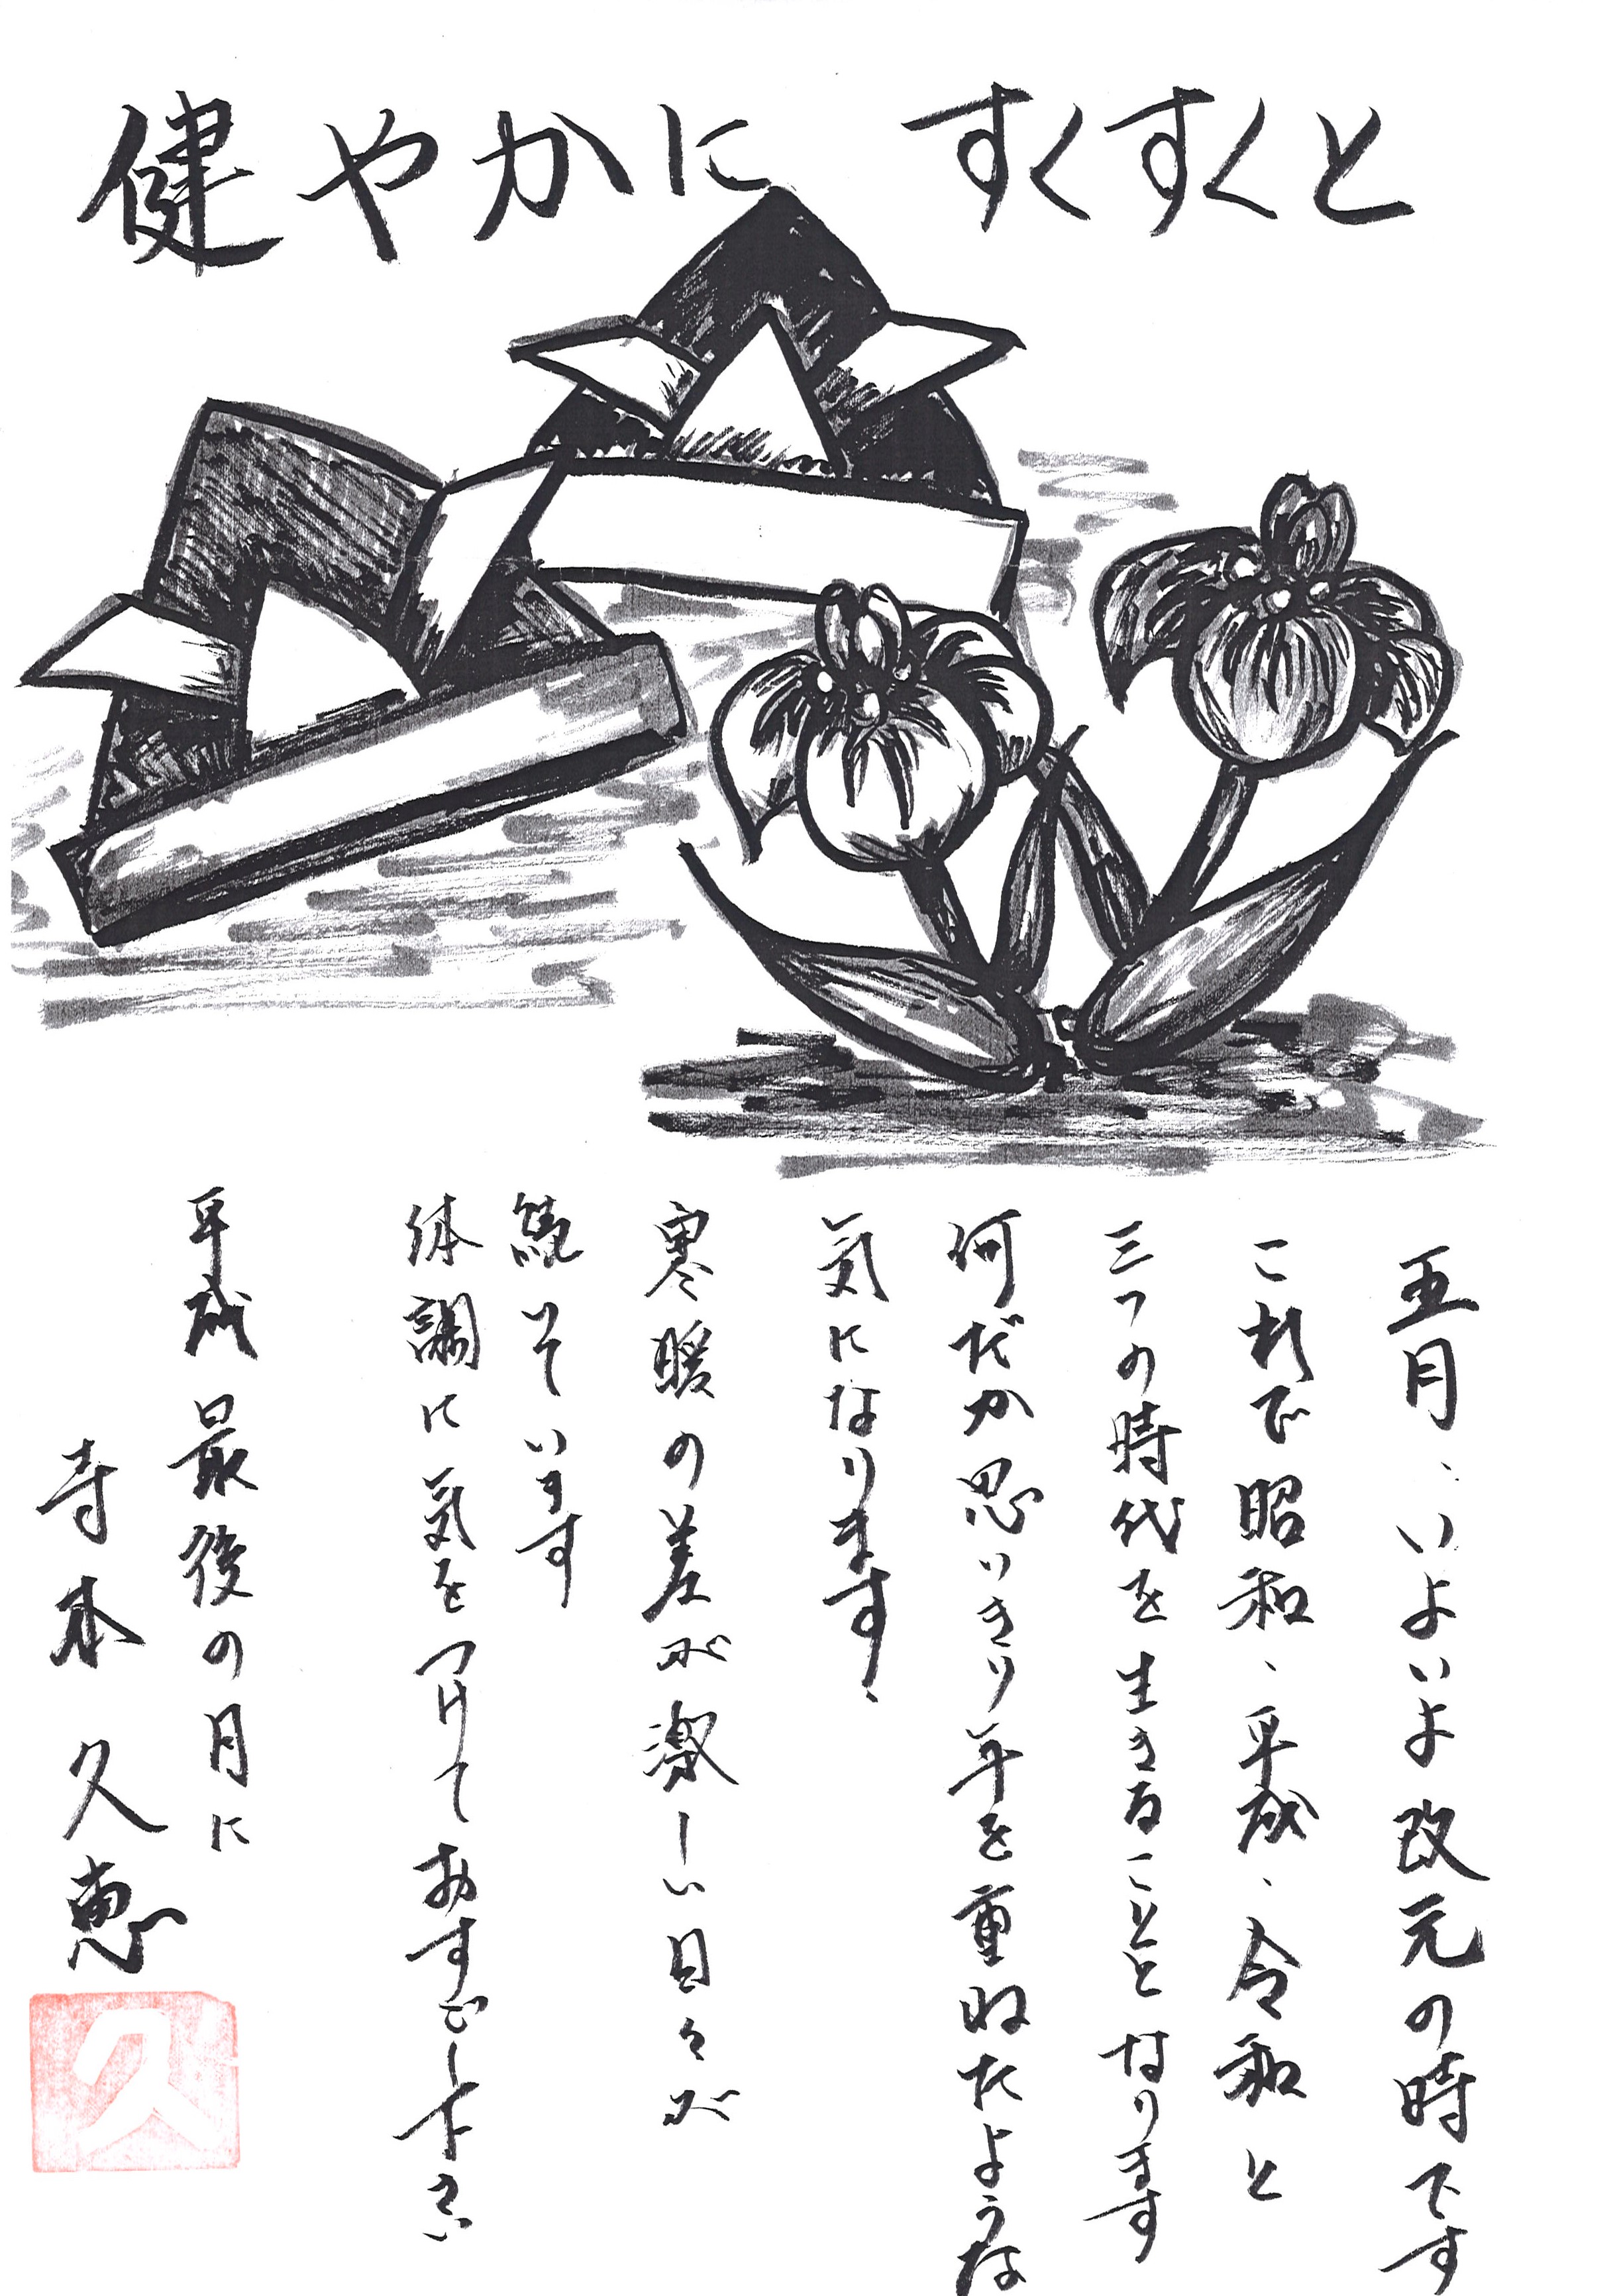 健やかに すくすくと
五月、いよいよ改元の時です
これで昭和、平成、令和と
三つの時代を生きることとなります
何だか思いきり年を重ねたような
気になります、
寒暖の差が激しい日々が
続いています
体調に気をつけておすごし下さい
平成最後の月に
寺本久恵
久